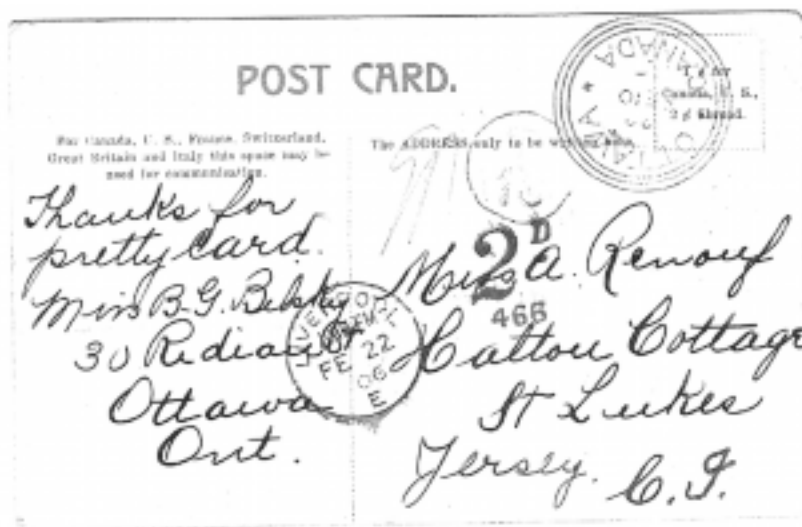 POST CARD.
For Canada, U. S., France, Switzerland,
Great Britain and Italy this space may be
used for communication.
The ADDRESS only to be
Canada, U. S.,
2 ¢ Abroad.
OTTAWA
CANADA
Thanks for
pretty card.
Miss B. G. Belsky
30 St
Ottawa
Ont.
LIVERPOOL
FE 22
06
E
2D
466
Miss A. Renouf
Halton Cottage
St Lukes
Jersey. C. I.